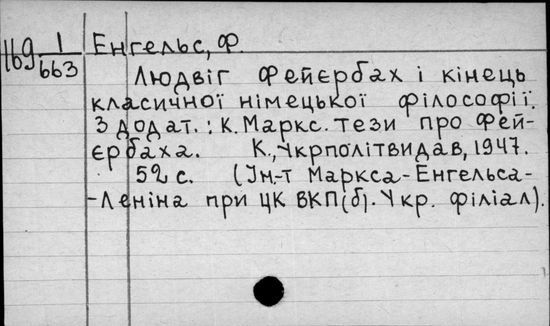 169 1/663 Енгельс, Ф.
Людвіг Фейєрбах і кінець
класичної німецької філософії.
З додат.: К. Маркс. Тези про Фей-
єрбаха. К., Укрполітвидав, 1947.
52 с. (Ін-т Маркса-Енгельса-
-Леніна при ЦК ВКП(б). Укр. філіал).